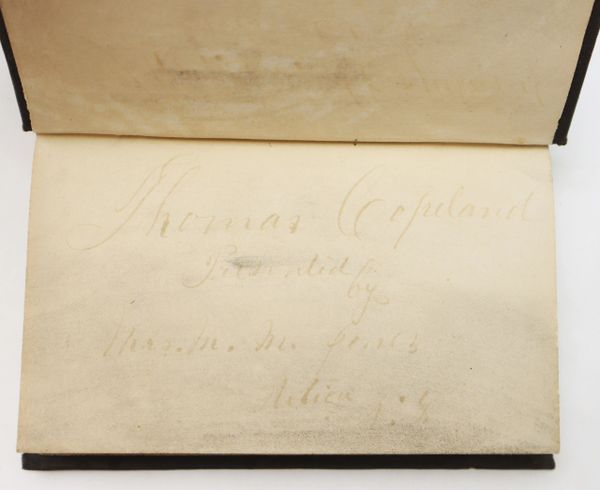 Thomas Copeland
Presented
by
M. M. Jones
Utica